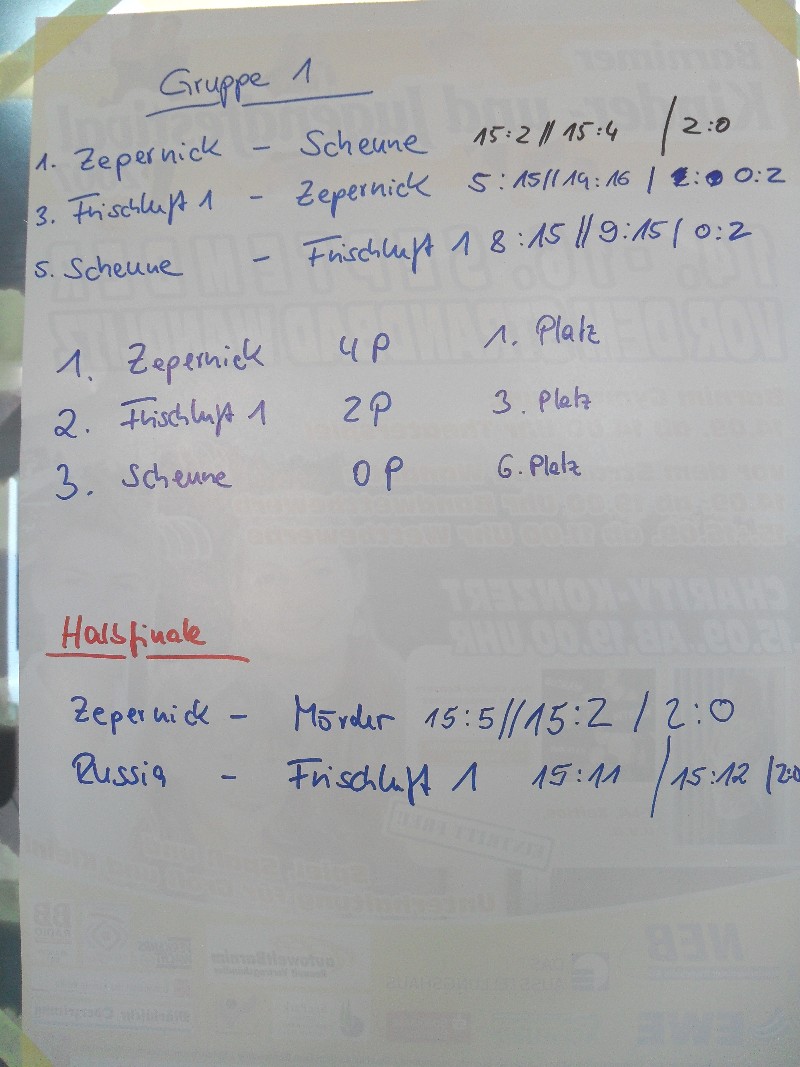 Gruppe 1
1. Zepernick - Scheune 15:2 // 15:4 / 2:0
3. Frischluft 1 - Zepernick 5:15 // 14:16 / 0:2
5. Scheune - Frischluft 1 8:15 // 9:15 / 0:2
1. Zepernick 4P 1. Platz
2. Frischluft 1 2P 3. Platz
3. Scheune 0P 6. Platz
Halbfinale
Zepernick - Mörder 15:5 // 15:2 / 2:0
Russia - Frischluft 1 15:11 / 15:12 / 2:0